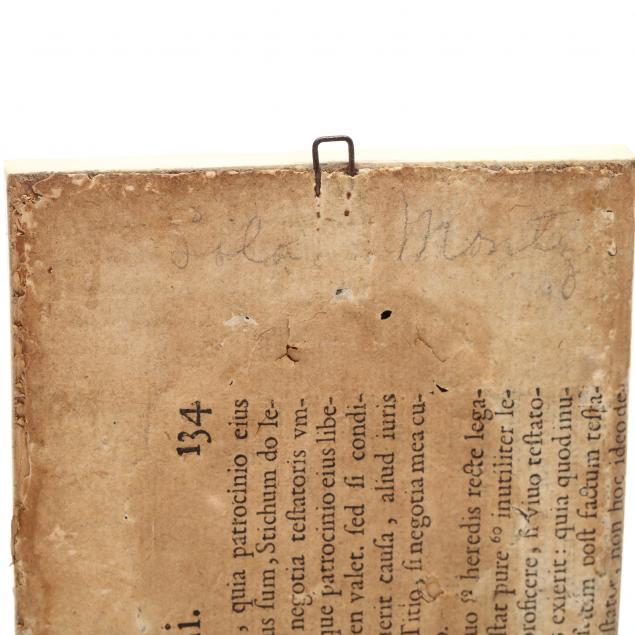 Lola Montez
134
, quia patrocinio eius
us sum, Stichum do le-
negotia testatoris vm-
que patrocinio eius libe-
en valet. sed si condi-
uerit causa, aliud iuris
Titio, si negotia mea cu-
o.
uo ⁵⁹ heredis recte lega-
stat pure ⁶⁰ inutiliter le-
proficere, si viuo testato-
exierit: quia quod inu-
post factum testa-
, non hoc ideo de-
ni.